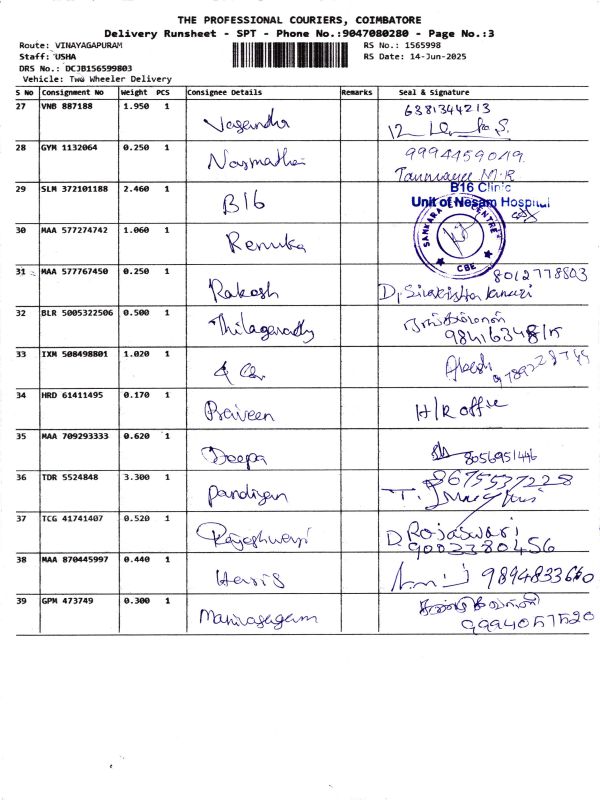 THE PROFESSIONAL COURIERS, COIMBATORE
Delivery Runsheet - SPT - Phone No.:9047080280 - Page No.:3
Route: VINAYAGAPURAM RS No.: 1565998
Staff: USHA RS Date: 14-Jun-2025
DRS No.: DCJB156599803
Vehicle: Two Wheeler Delivery
S No Consignment No Weight PCS Consignee Details Remarks Seal & signature
27 VNB 887188 1.950 1 6381344213
28 GYM 1132064 0.250 1 Nasmathe 9994459019
M.R
29 SLM 372101188 2.460 1 B16 B16 Clinic
Unit of Nesam Hospital
SANKARA EYE CENTRE
CBE
30 MAA 577274742 1.060 1 Renuka
31 MAA 577767450 0.250 1 Rakesh 8012778803
32 BLR 5005322506 0.500 1 Thilagavathy
33 IXM 508498801 1.020 1
34 HRD 61411495 0.170 1 Praveen H/R office
35 MAA 709293333 0.620 1 Deepa 8056951446
36 TDR 5524848 3.300 1 Pandiyan 8675537228
37 TCG 41741407 0.520 1 Rajeshwari D. Rojaswari
9002380456
38 MAA 870445997 0.440 1 Haris 9894833660
39 GPM 473749 0.300 1 Manivasagam
9994057520